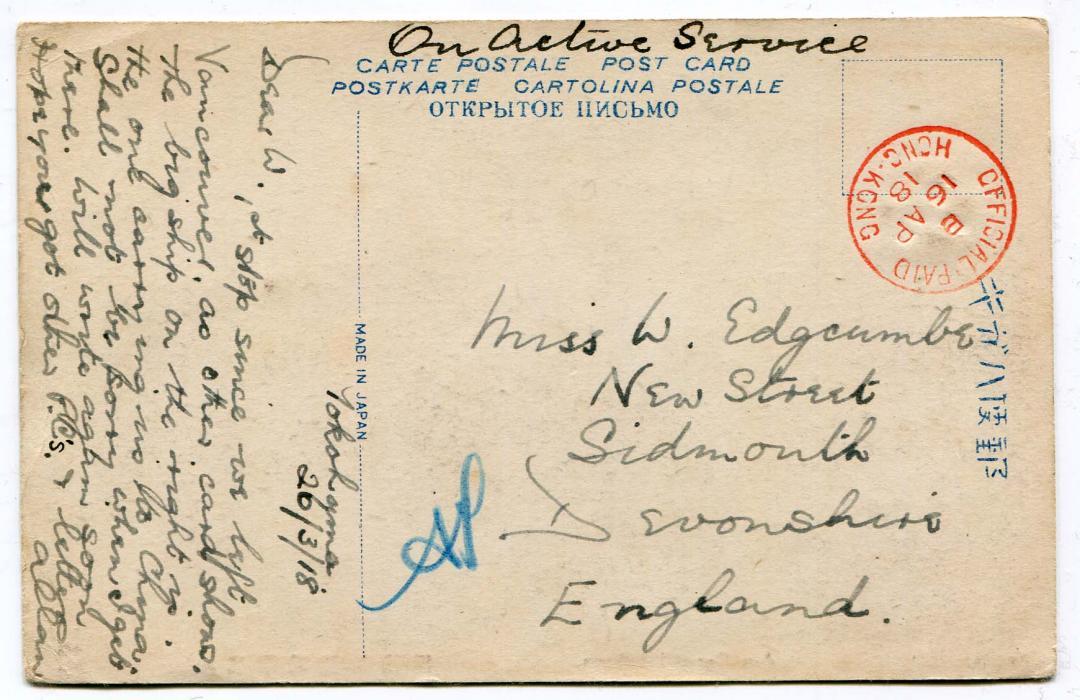 On Active Service
CARTE POSTALE POST CARD
POSTKARTE CARTOLINA POSTALE
ОТКРЫТОЕ ПИСЬМО
HONG-KONG
OFFICIAL PAID
B
16 AP
18
MADE IN JAPAN
Yokohama
26/3/18
Dear W., 1st stop since we left
Vancouver, as other card shows.
The big ship on the right is
the one carrying us to China.
Shall not be sorry when I get
there. Will write again soon
Hope you got other P.C's. & letters
Allan
Miss W. Edgcumbe
New Street
Sidmouth
Devonshire
England.